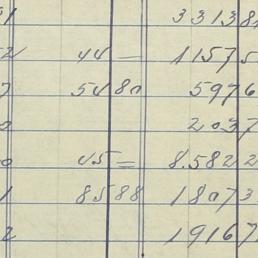 1 33138
2 44 — 11575
7 5480 5976
0 2037
0 45 = 8.582 2
1 8588 18073
2 19167